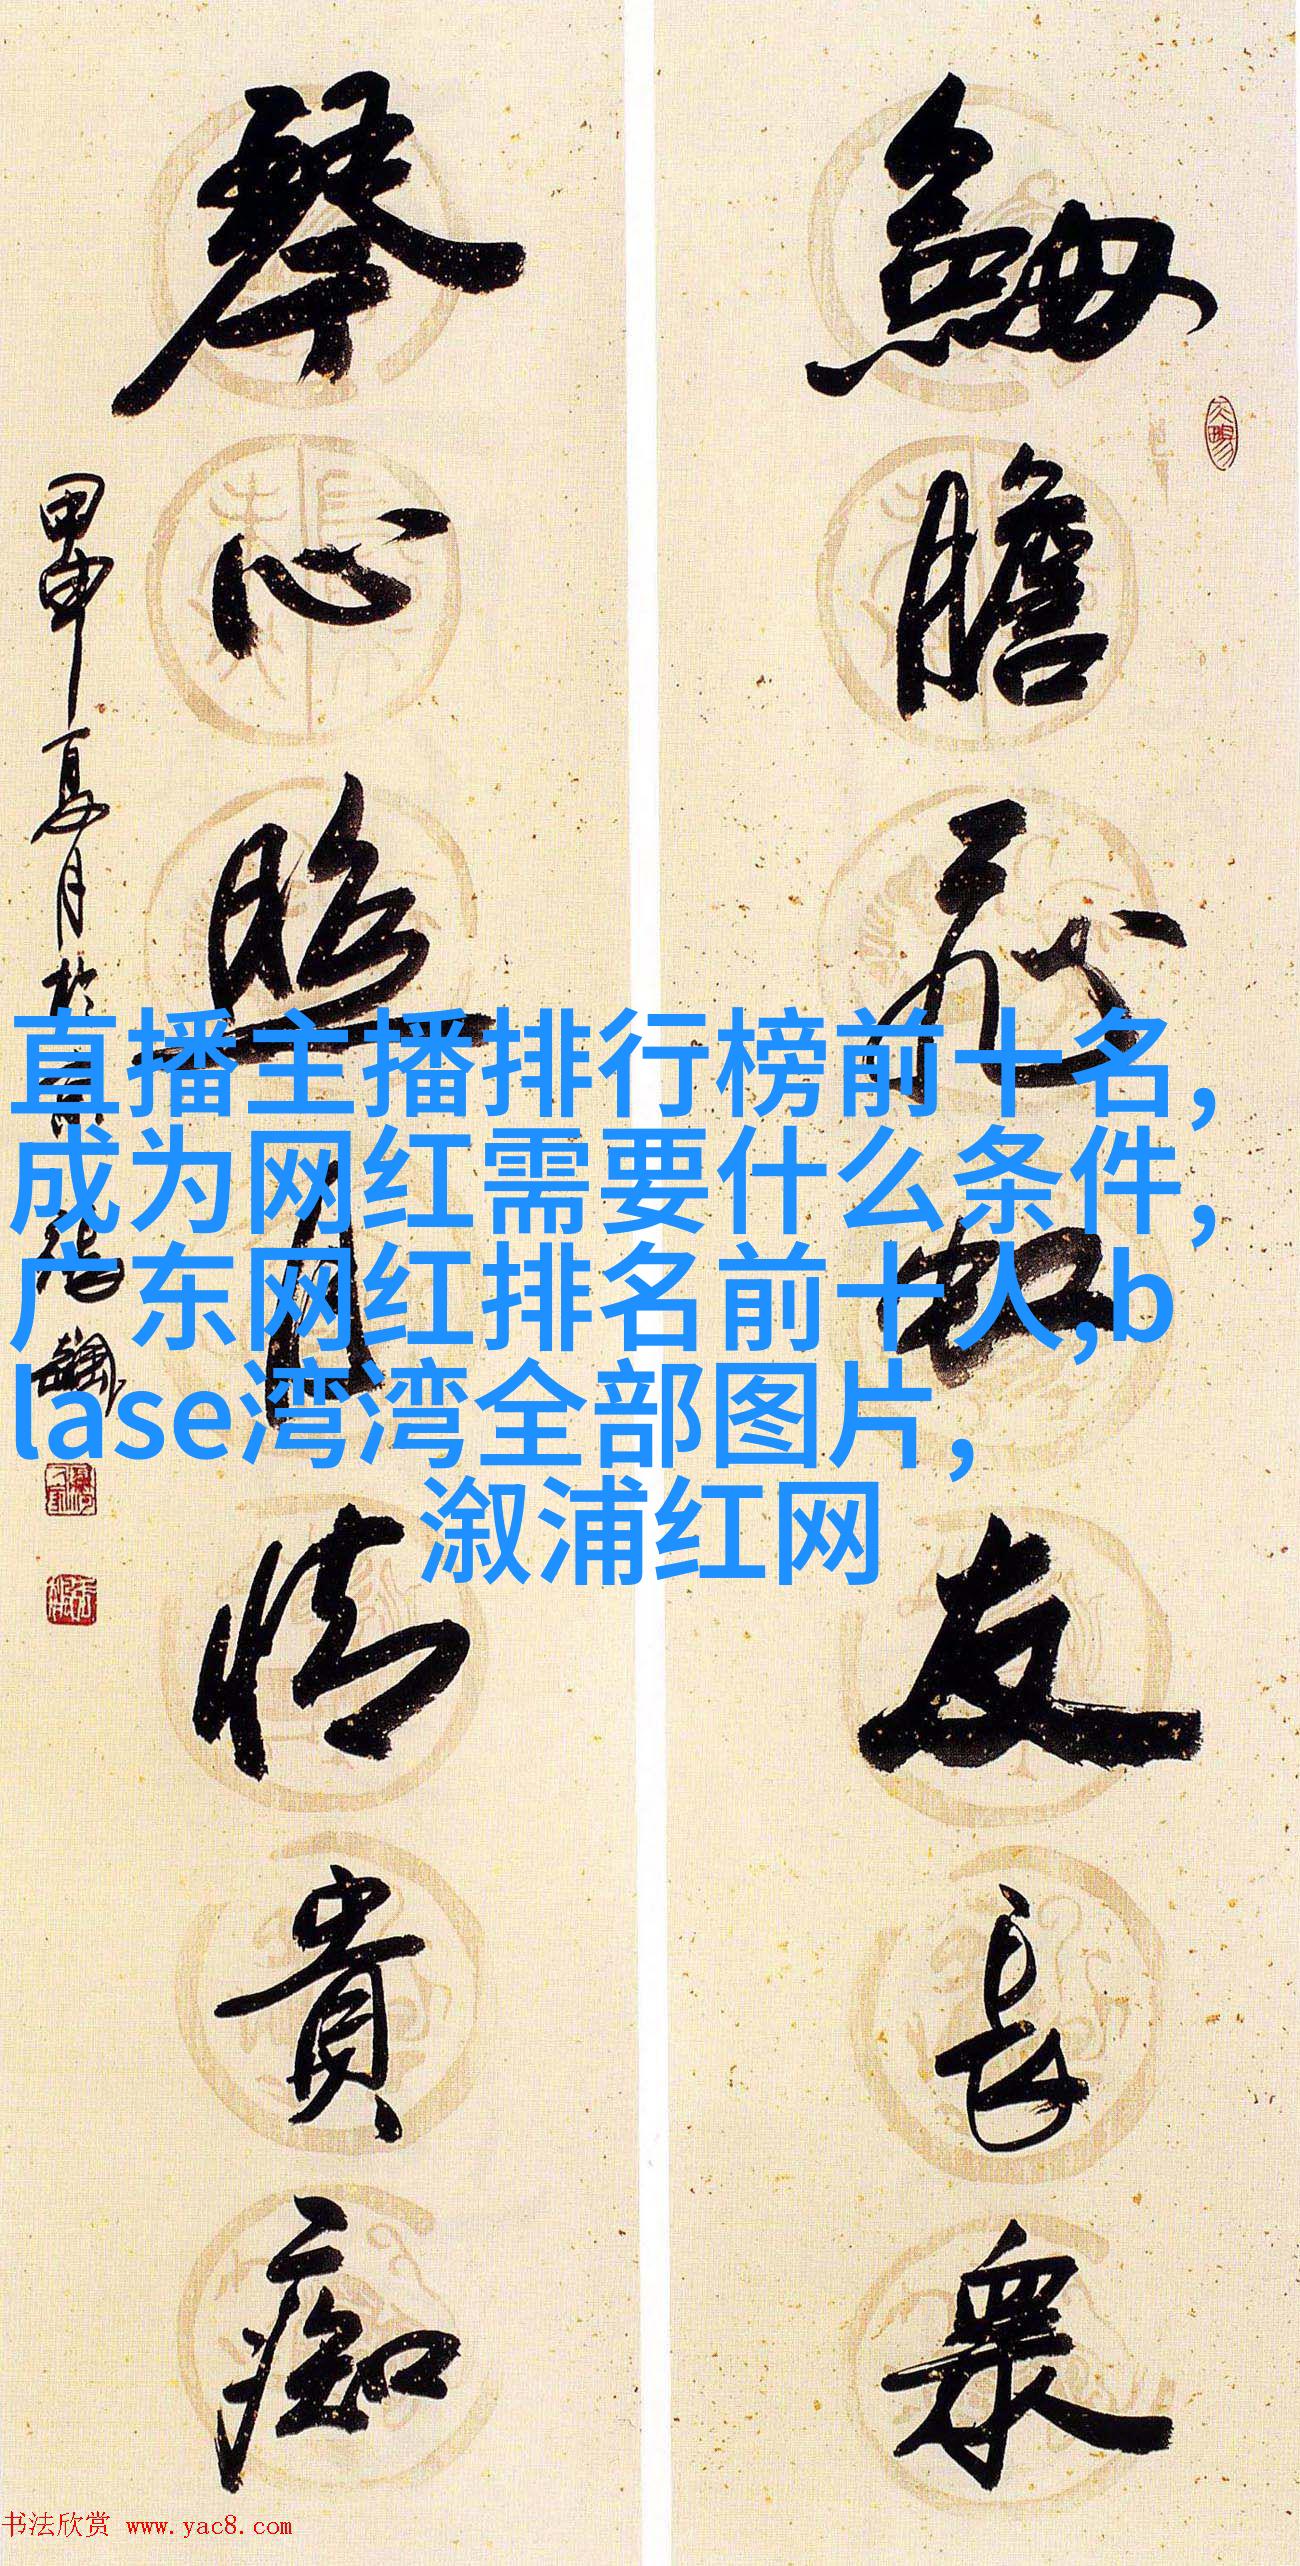 劍膽飛虹友長衆
琴心照月情貴痴
甲申夏月於
直播主播排行榜前十名,
成为网红需要什么条件,
广东网红排名前十人,b
lase湾湾全部图片,
溆浦红网
书法欣赏 www.yac8.com